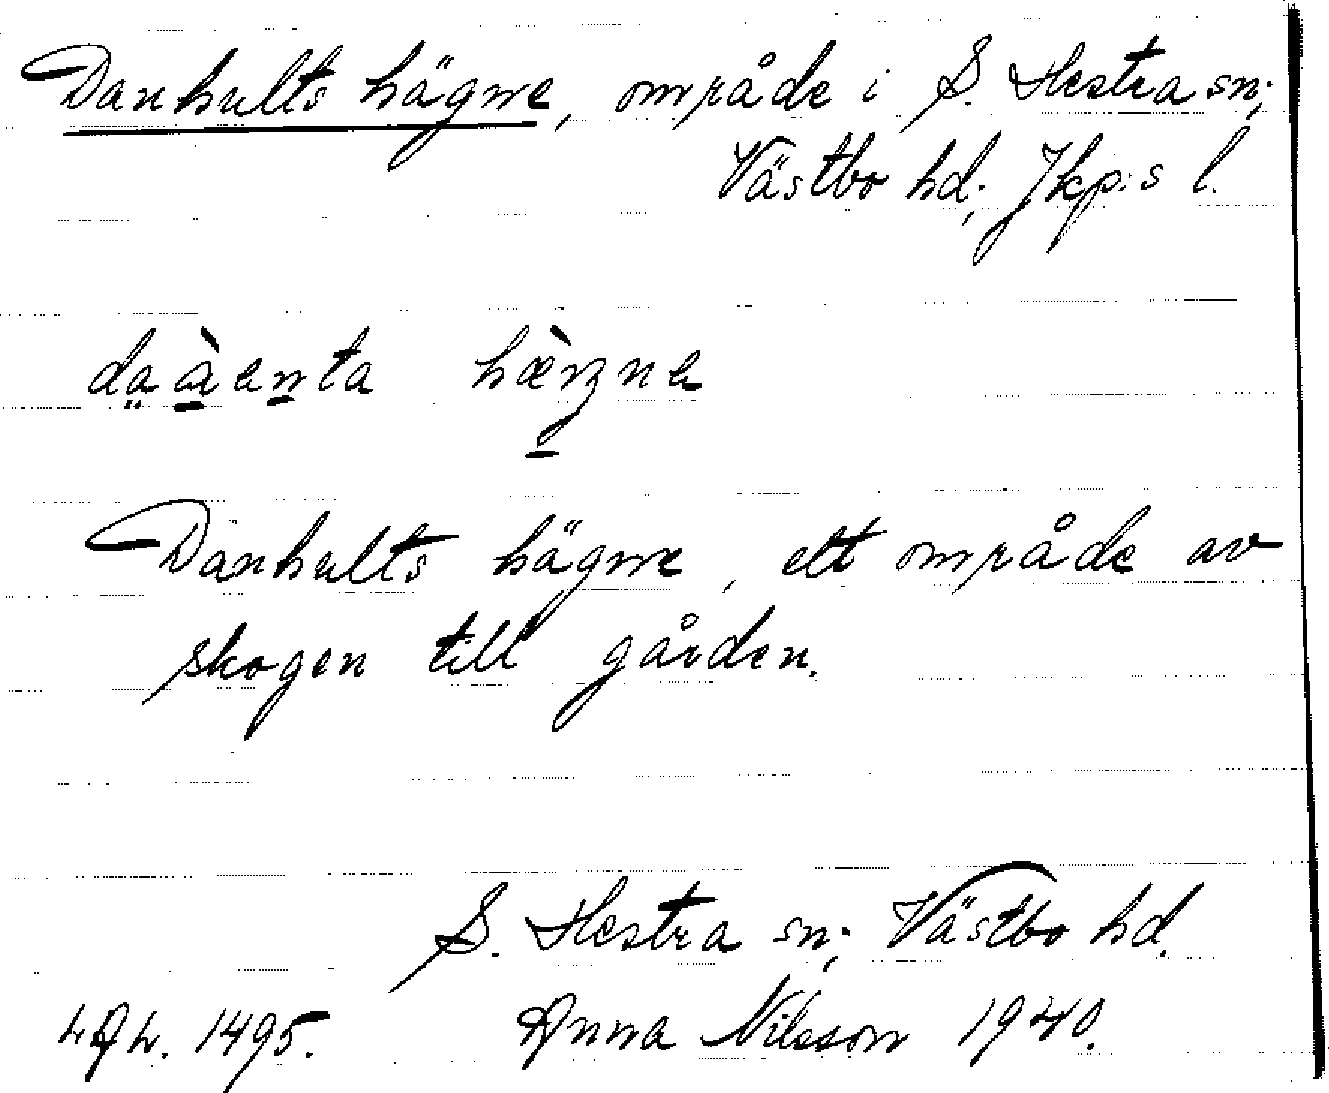 Danhults hägne, område i S. Hestra sn;
Västbo hd; Jkp:s l.
Danhults hägne, ett område av
skogen till gården.
S. Hestra sn; Västbo hd.
1495. Anna Nilsson 1940.